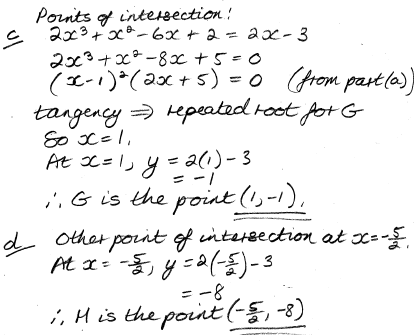 c Points of intersection!
2x³ + x² - 6x + 2 = 2x - 3
2x³ + x² - 8x + 5 = 0
(x-1)²(2x+5) = 0 (from part (a))
tangency ⇒ repeated root for G
So x = 1.
At x = 1, y = 2(1) - 3
= -1
∴ G is the point (1,-1).
d Other point of intersection at x = -5/2.
At x = -5/2, y = 2(-5/2) - 3
= -8
∴ H is the point (-5/2, -8)